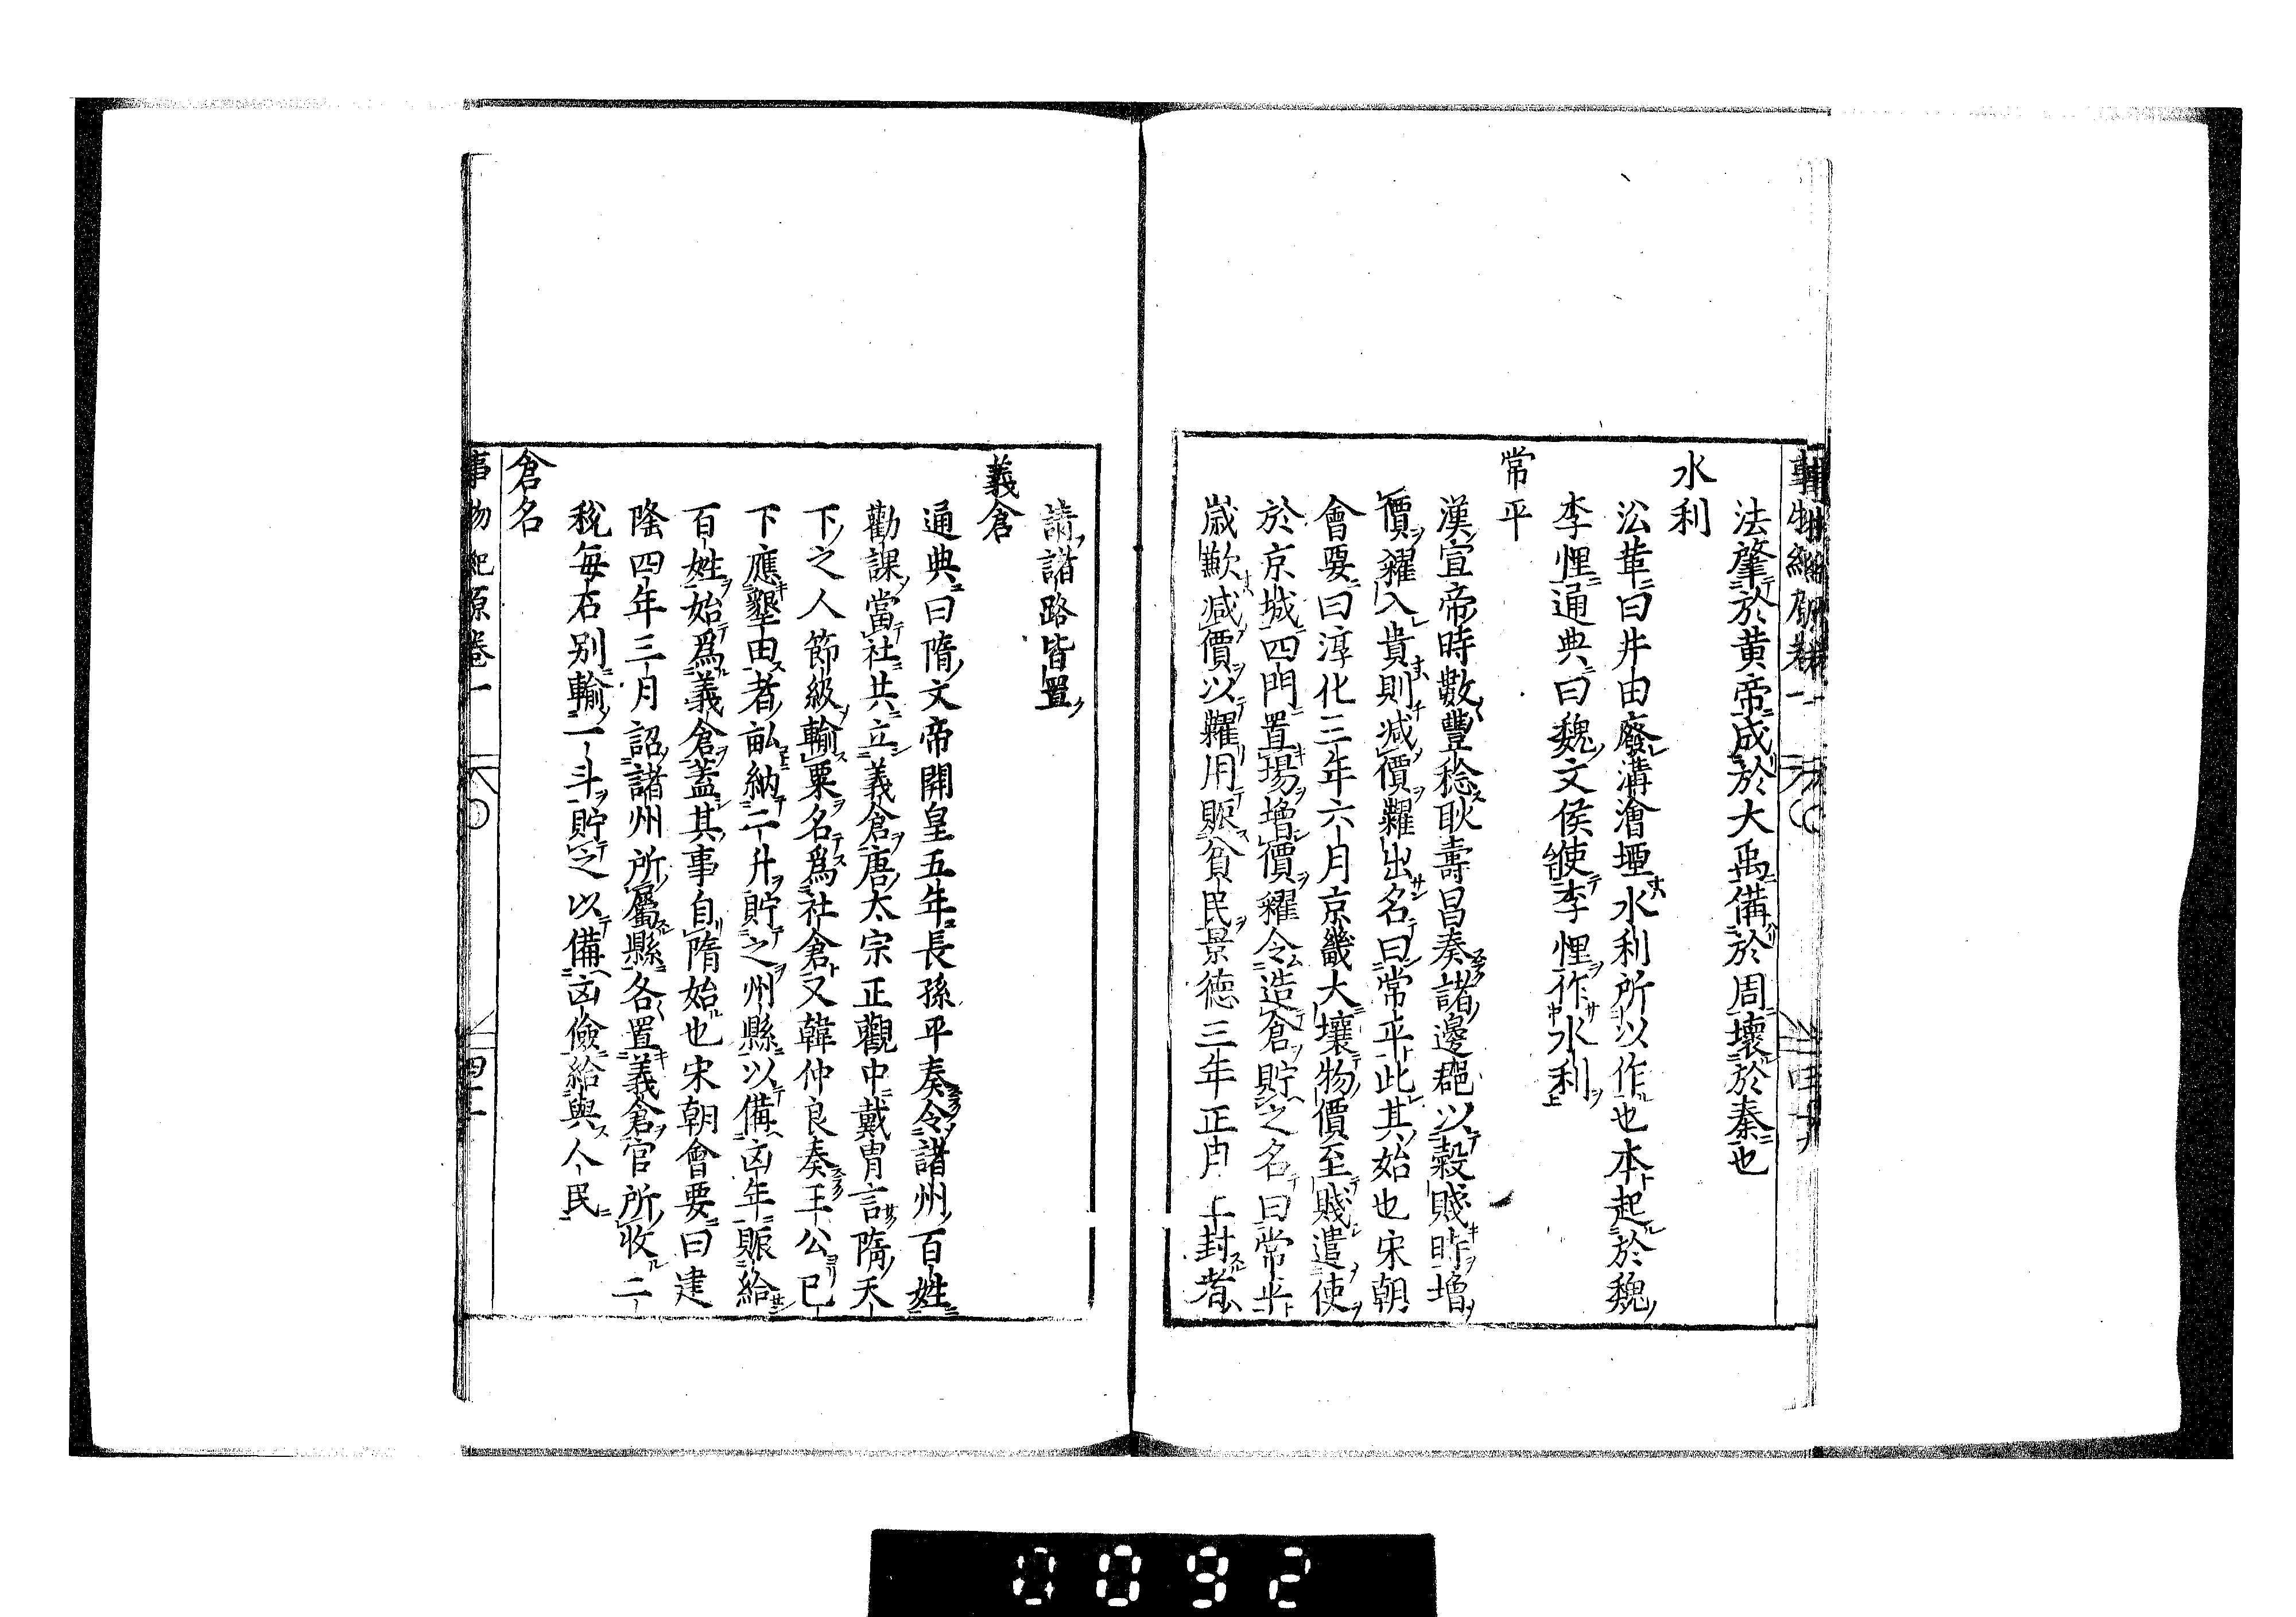 法肇於黄帝成於大禹備於周壞於秦也
水利
㳂革曰井由廢溝澮堙水利所以作也本起於魏
李悝通典曰魏文侯使李悝作水利
常平
漢宣帝時數豐稔耿壽昌奏諸邊郡以穀賤時增
價糴入貴則减價糶出名曰常平此其始也宋朝
會要曰淳化三年六月京畿大壤物價至賤遣使
於京城四門置塲增價糴令造倉貯之名曰常平
歳歉减價以糶用賑貧民景德三年正月上封者
請諸路皆置
義倉
通典曰隋文帝開皇五年長孫平奏令諸州百姓
勸課當社共立義倉唐太宗正觀中戴胄言隋天
下之人節級輸粟名爲社倉又韓仲良奏王公已
下應墾由者畝納二升貯之州縣以備凶年賑給
百姓始爲義倉蓋其事自隋始也宋朝會要曰建
隆四年三月詔諸州所屬縣各置義倉官所收二
稅每石别輸一斗貯之以備凶儉給與人民
倉名
事物紀原卷一
四十
0092